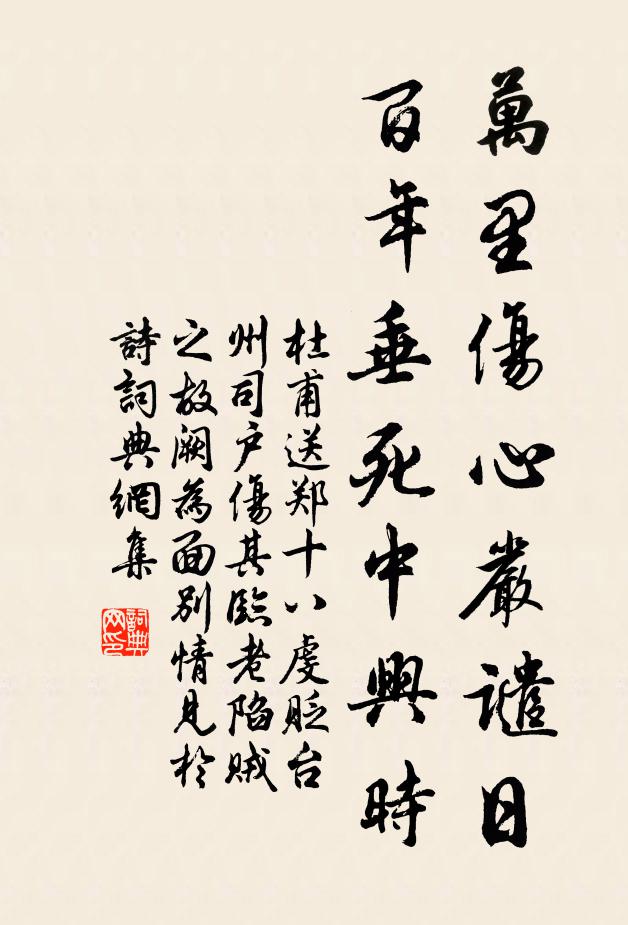 萬里傷心嚴譴日
百年垂死中興時
杜甫送郑十八虔貶台
州司户傷其臨老陷贼
之故阙為面别情見於
詩詞典網集
詞典网印